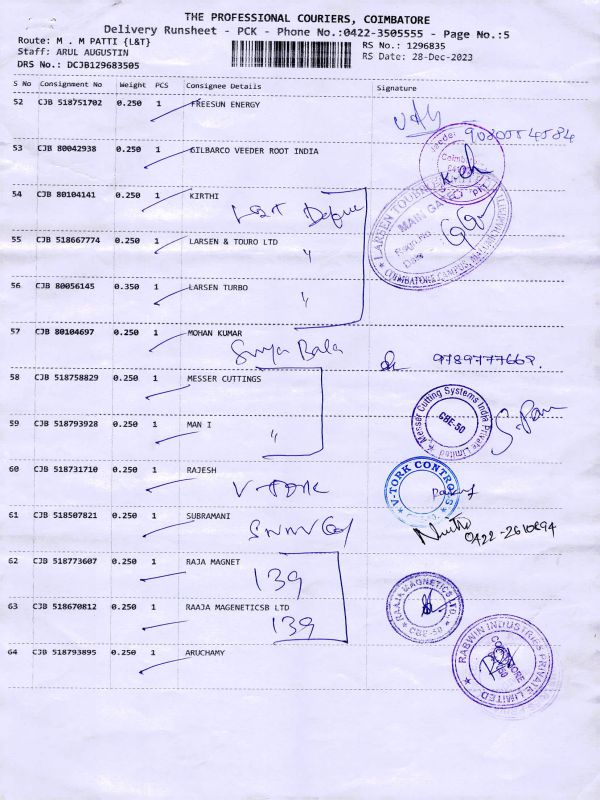 THE PROFESSIONAL COURIERS, COIMBATORE
Delivery Runsheet - PCK - Phone No.:0422-3505555 - Page No.:5
Route: M . M PATTI {L&T}
RS No.: 1296835
Staff: ARUL AUGUSTIN
RS Date: 28-Dec-2023
DRS No.: DCJB129683505
S No Consignment No Weight PCS Consignee Details Signature
52 CJB 518751702 0.250 1 FREESUN ENERGY
9080554584
53 CJB 80042938 0.250 1 GILBARCO VEEDER ROOT INDIA
54 CJB 80104141 0.250 1 KIRTHI
L&T Defence
LARSEN TOUBRO MAIN GATE COIMBATORE CAMPUS
55 CJB 518667774 0.250 1 LARSEN & TOURO LTD
"
56 CJB 80056145 0.350 1 LARSEN TURBO
"
57 CJB 80104697 0.250 1 MOHAN KUMAR
Surya Bala
9789777669.
58 CJB 518758829 0.250 1 MESSER CUTTINGS
Messer Cutting Systems India Private Limited CBE-50
59 CJB 518793928 0.250 1 MAN I
"
60 CJB 518731710 0.250 1 RAJESH
V-TORK
V-TORK CONTROLS
61 CJB 518507821 0.250 1 SUBRAMANI
0422-2610894
62 CJB 518773607 0.250 1 RAJA MAGNET
139
63 CJB 518670812 0.250 1 RAAJA MAGENETICSB LTD
139
RAAJA MAGNETICS LTD. CBE-50
64 CJB 518793895 0.250 1 ARUCHAMY
RABWIN INDUSTRIES PRIVATE LIMITED